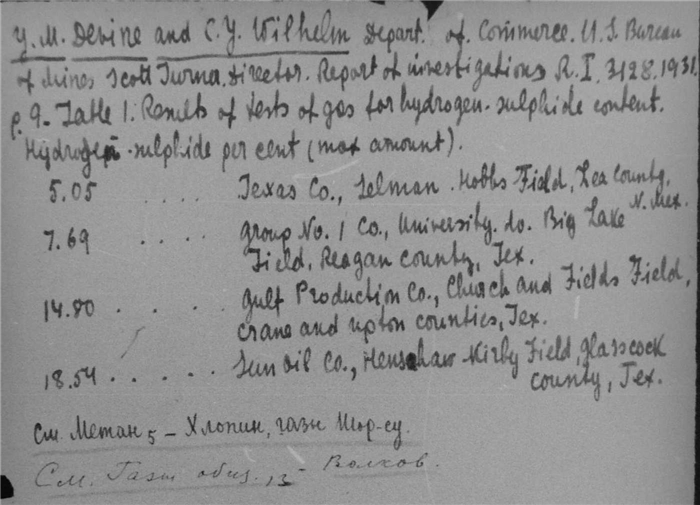 Y. M. Devine and C. Y. Wilhelm Depart. of Commerce. U. S. Bureau
of Mines Scott Turna, Director. Report of investigations R. I. 3128. 1931.
p. 9 - Table 1. Results of tests of gas for hydrogen-sulphide content.
Hydrogen-sulphide per cent (max amount).
5.05 .... Texas Co., Selman. Hobbs Field, Lea County, N. Mex.
7.69 .... Group No. 1 Co., University. do. Big Lake
Field, Reagan county, Tex.
14.80 ..... Gulf Production Co., Church and Fields Field,
crane and upton counties, Tex.
18.54 ..... Sun Oil Co., Henshaw-Kirby Field, Glasscock
county, Tex.
См. Метан 5 - Хлопин, газы Шор-су.
См. Газы общ. 13 - Волков.